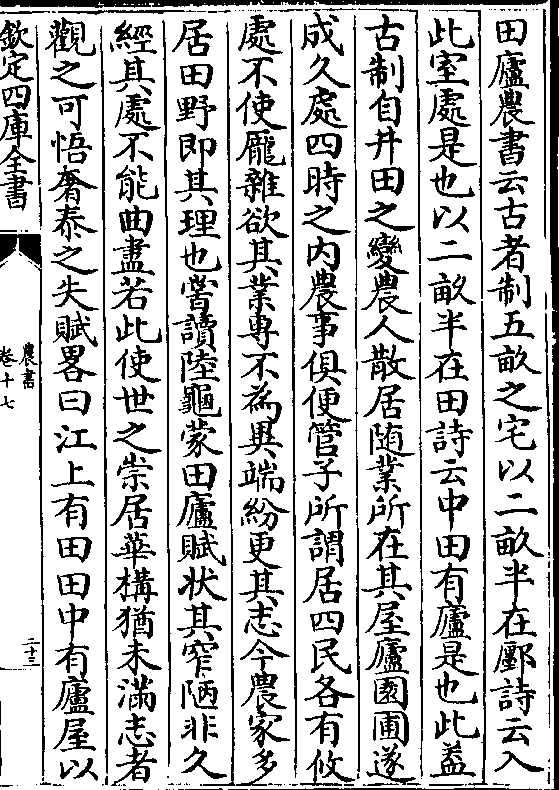 田廬農書云古者制五畝之宅以二畝半在鄽詩云入
此室處是也以二畝半在田詩云中田有廬是也此葢
古制自井田之變農人散居随業所在其屋廬園圃遂
成久處四時之内農事俱便管子所謂居四民各有攸
處不使龐雜欲其業専不為異端紛更其志今農家多
居田野即其理也嘗讀陸龜蒙田廬賦状其窄陋非久
經其處不能曲盡若此使世之崇居華構猶未滿志者
觀之可悟奢泰之失賦畧曰江上有田田中有廬屋以
欽定四庫全書
農書
卷十七
二十三